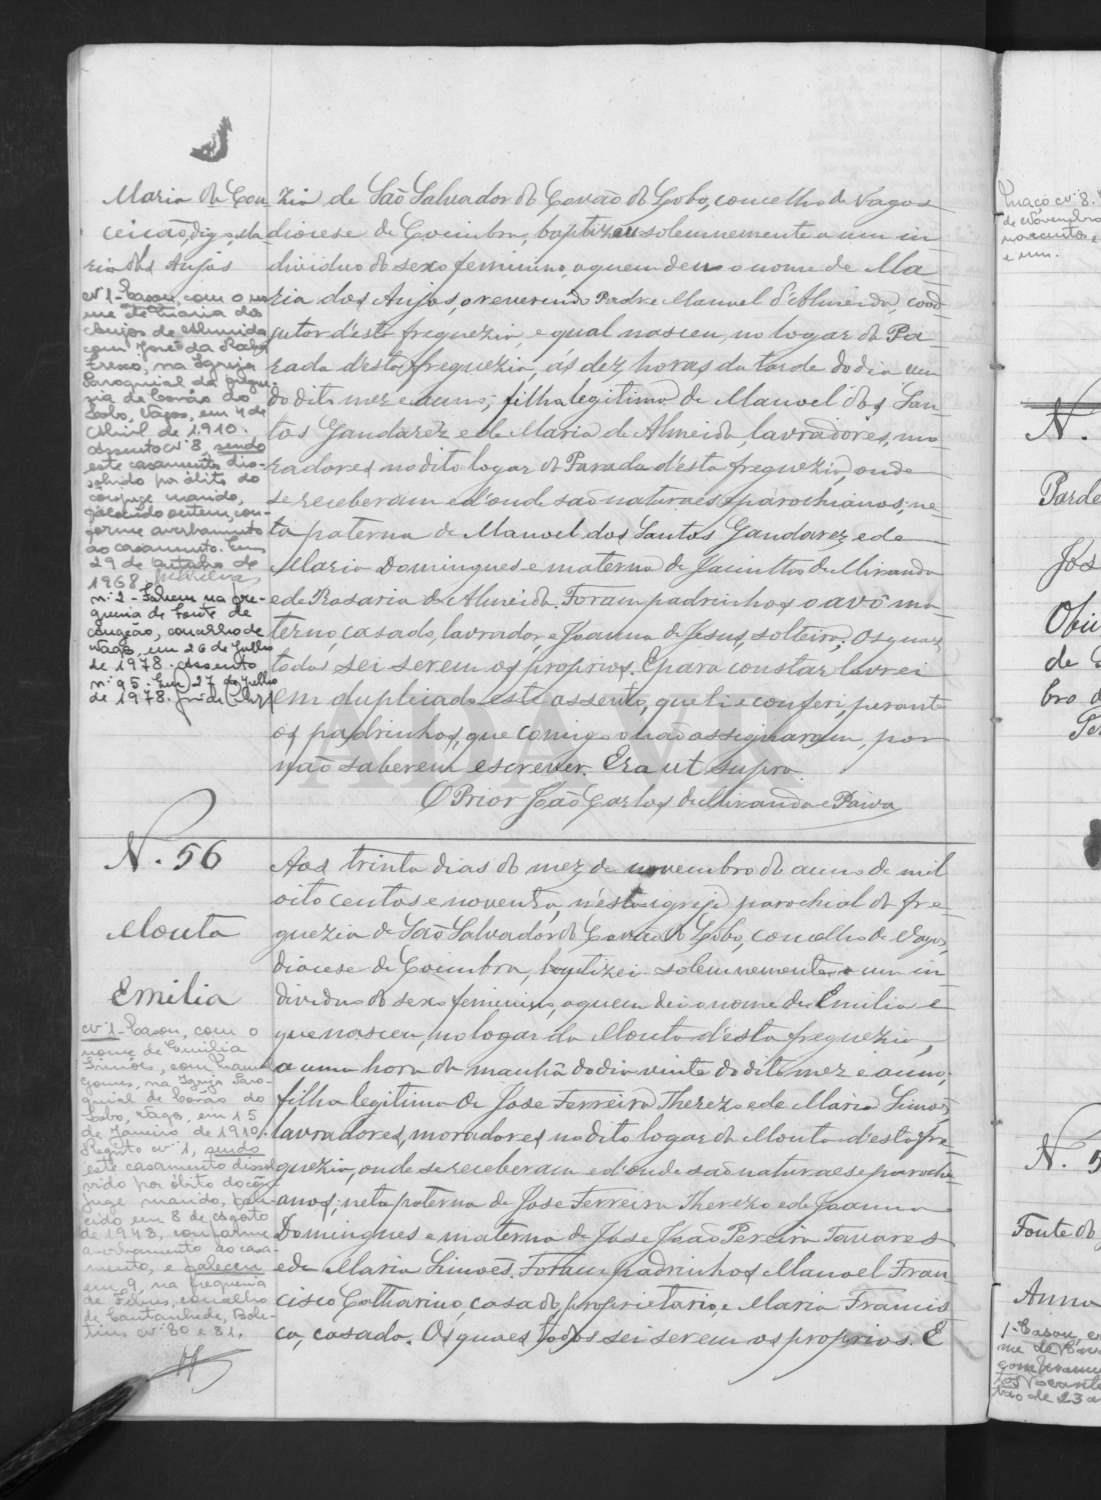 Maria da Con-
ceição, digo, Ma-
ria dos Anjos
Nº 1 - Casou, com o no-
me de Maria dos
Anjos de Almeida
com José da Rabo
Freixo, na Igreja
Paroquial da fregue-
sia de Covão do
Lobo, Vagos, em 4 de
Abril de 1910.
Assento nº 8, sendo
este casamento dis-
solvido por óbito do
conjuge marido,
falecido ontem, con-
forme averbamento
ao casamento. Em
29 de outubro de
1968.
nº 2 - Faleceu na fre-
guesia de Fonte de
Angeão, concelho de
Vagos, em 26 de Julho
de 1978. Assento
nº 95. Em 27 de Julho
de 1978.
zia de São Salvador do Covão do Lobo, concelho de Vagos
diocese de Coimbra, baptizou solemnemente a um in-
dividuo do sexo feminino, a quem deu o nome de Ma
ria dos Anjos, o reverendo Padre Manuel d'Almeida, coad
jutor d'esta freguezia, e qual nasceu, no logar da Pa-
rada d'esta freguezia, ás dez horas da tarde do dia um
do dito mez e anno; filha legitima de Manoel dos San-
tos Gandarez e de Maria de Almeida, lavradores, mo
radores no dito logar da Parada d'esta freguezia, onde
se receberam e d'onde são naturaes e parochianos; ne-
ta paterna de Manoel dos Santos Gandarez e de
Maria Domingues e materna de Jacintho de Miranda
e de Rosaria de Almeida. Foram padrinhos o avô ma
terno, casado, lavrador, e Joanna de Jesus, solteira; Os quaes
todos sei serem os proprios. E para constar lavrei
em duplicado este assento, que li e conferi, perante
os padrinhos, que comigo o não assignaram, por
não saberem escrever. Era ut supra.
O Prior João Carlos de Miranda e Paiva
N. 56
Mouta
Emilia
Nº 1 - Casou, com o
nome de Emilia
Simões, com Manuel
Gomes, na Igreja Paro-
quial de Covão do
Lobo, Vagos, em 15
de Janeiro de 1910.
Registo nº 1, sendo
este casamento dissol
vido por óbito do côn-
juge marido, fale-
cido em 8 de Agosto
de 1943, conforme
averbamento ao casa-
mento, e faleceu
em 9, na freguesia
de Febres, concelho
de Cantanhede, Bole-
tins nº 80 e 81.
Aos trinta dias do mez de novembro do anno de mil
oito centos e noventa, n'esta igreja parochial da fre-
guezia de São Salvador do Covão do Lobo, concelho de Vagos,
diocese de Coimbra, baptizei solemnemente a um in
dividuo do sexo feminino, a quem dei o nome de Emilia e
que nasceu, no logar da Mouta d'esta freguezia,
a uma hora da manhã do dia vinte do dito mez e anno;
filha legitima de Jose Ferreira Therezo e de Maria Simoes,
lavradores, moradores no dito logar da Mouta d'esta fre-
guezia, onde se receberam e d'onde são naturaes e parochi
anos; neta paterna de Jose Ferreira Therezo e de Joanna
Domingues e materna de Jose João Pereira Tavares
e de Maria Simoes. Foram padrinhos Manoel Fran-
cisco Catharino, casado, proprietario, e Maria Francis
ca, casada. Os quaes todos sei serem os proprios. E
ADAVR
N.
Parde
Jos
N. 5
Fonte do
Anna